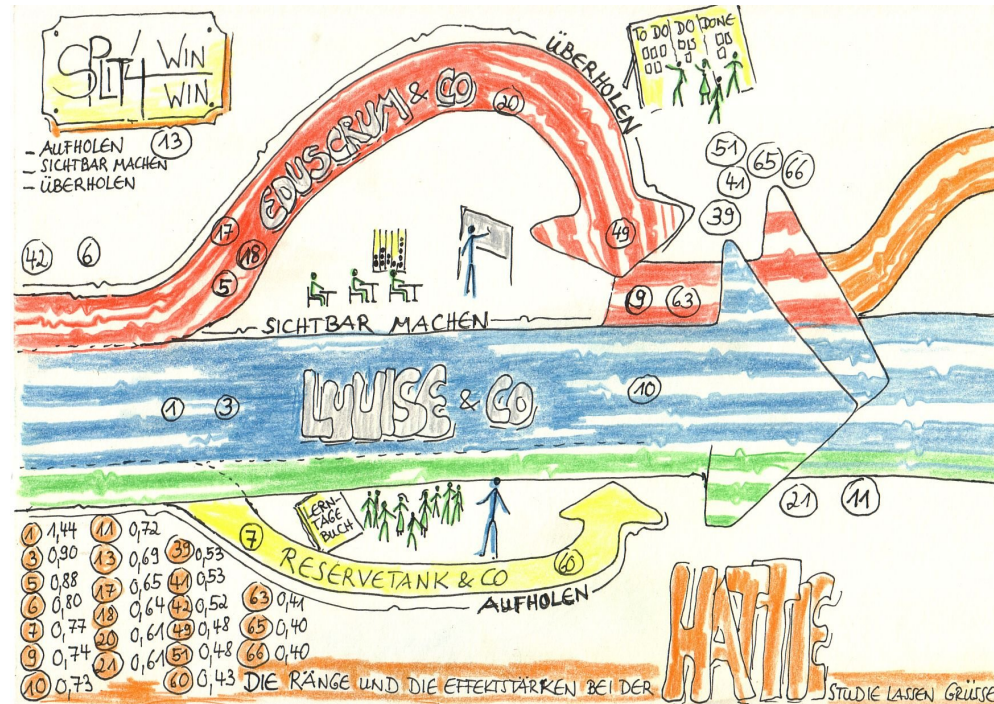 SPLIT4
WIN
WIN
- AUFHOLEN
- SICHTBAR MACHEN
- ÜBERHOLEN
13
TO DO DO DONE
ÜBERHOLEN
EDUSCRUM & CO
20
42 6
17
18
5
49
51
65 66
41
39
9 63
SICHTBAR MACHEN
1 3
LUUISE & CO
10
21 11
LERN-
TAGE
BUCH
7
RESERVETANK & CO
60
AUFHOLEN
1 1,44
3 0,90
5 0,88
6 0,80
7 0,77
9 0,74
10 0,73
11 0,72
13 0,69
17 0,65
18 0,64
20 0,61
21 0,61
39 0,53
41 0,53
42 0,52
49 0,48
51 0,48
60 0,43
63 0,41
65 0,40
66 0,40
DIE RÄNGE UND DIE EFFEKTSTÄRKEN BEI DER HATTIE STUDIE LASSEN GRÜSSE